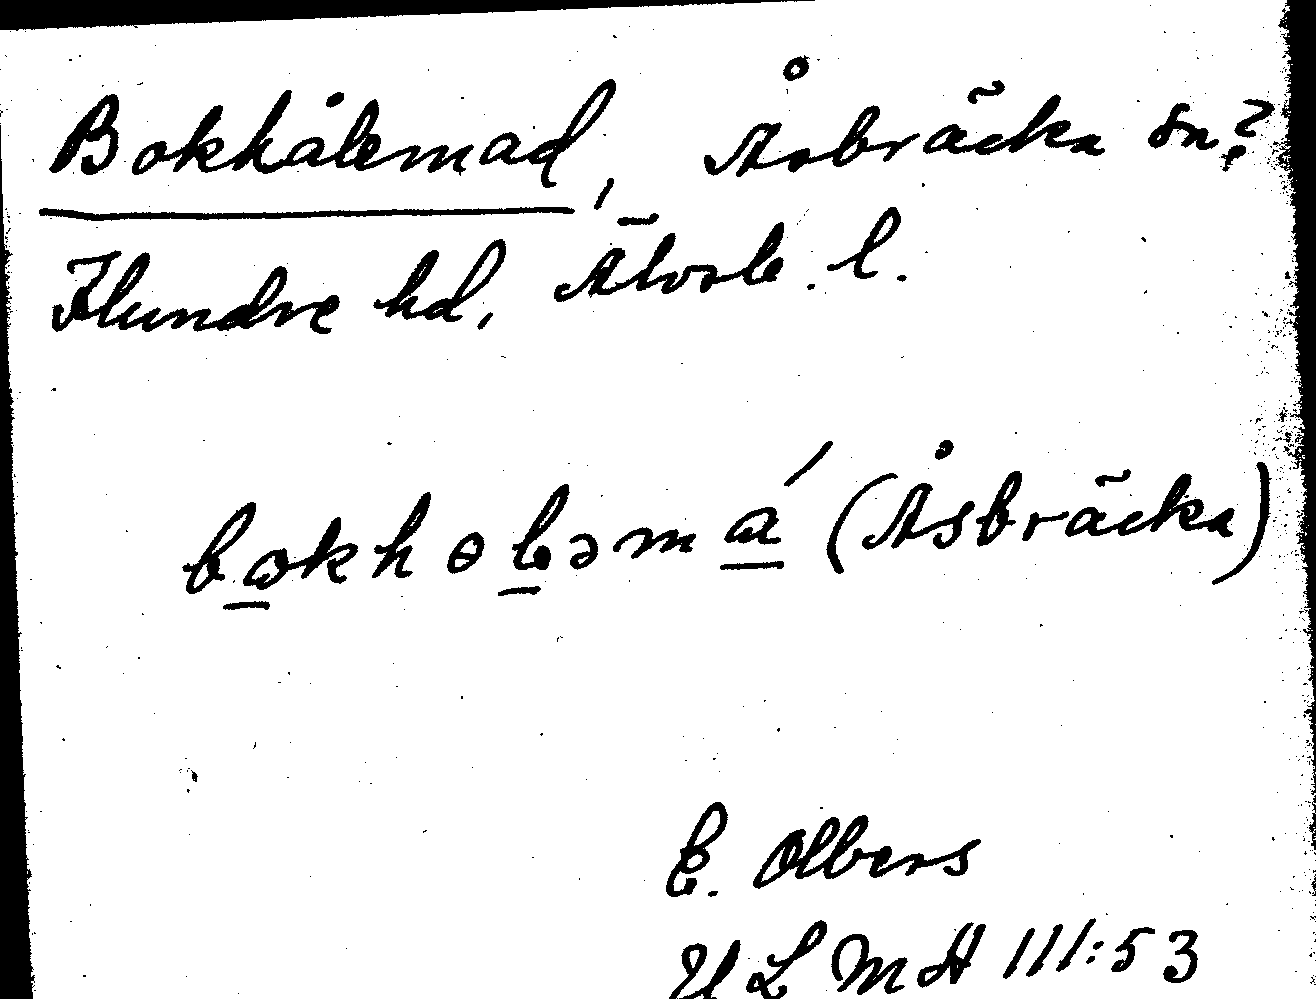 Bokhålemad, Åsbräcka sn?
Flundre hd, Älvsb. l.
bɷkhɵləmα´ (Åsbräcka)
E. Olbers
ULMA 111:53